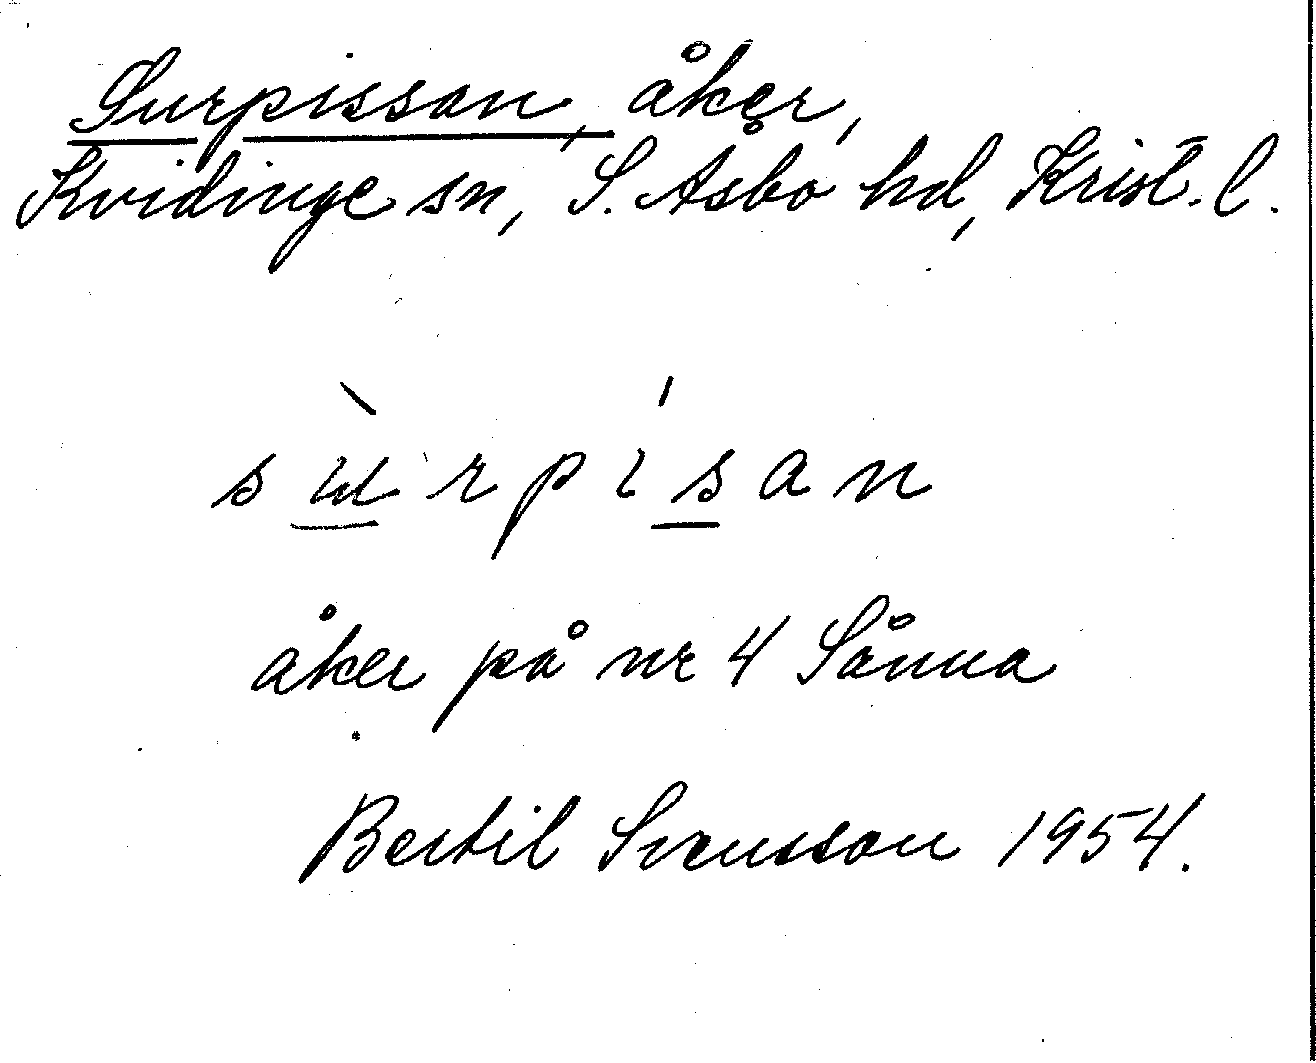 Surpissan, åker,
Kvidinge sn, S. Åsbo hd, Krist. l.
sùrpísan
åker på nr 4 Sånna
Bertil Svensson 1954.